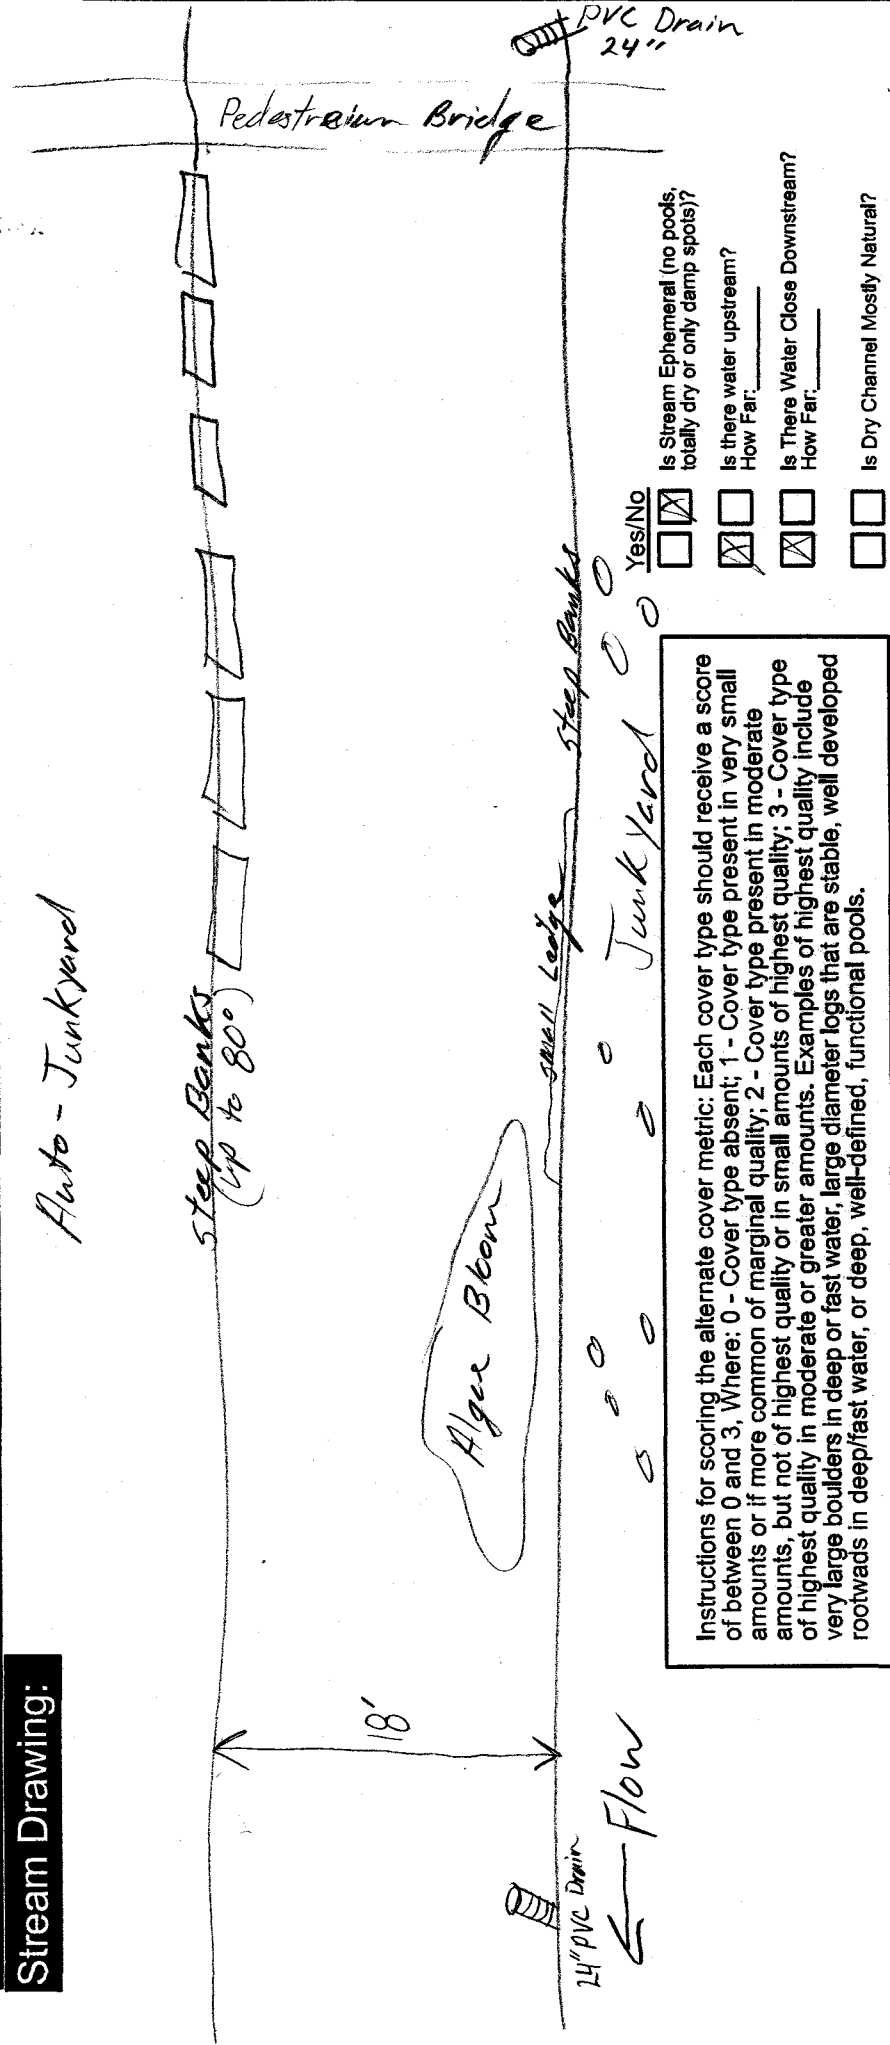 Stream Drawing:
Auto-Junkyard
Steep Banks
(up to 80°)
Pedestreium Bridge
PVC Drain
24"
18'
Algae Bloom
Small Ledge
Steep Banks
24" PVC Drain
Flow
Junkyard
Instructions for scoring the alternate cover metric: Each cover type should receive a score
of between 0 and 3, Where: 0 - Cover type absent; 1 - Cover type present in very small
amounts or if more common of marginal quality; 2 - Cover type present in moderate
amounts, but not of highest quality or in small amounts of highest quality; 3 - Cover type
of highest quality in moderate or greater amounts. Examples of highest quality include
very large boulders in deep or fast water, large diameter logs that are stable, well developed
rootwads in deep/fast water, or deep, well-defined, functional pools.
Yes/No
Is Stream Ephemeral (no pools,
totally dry or only damp spots)?
Is there water upstream?
How Far:
Is There Water Close Downstream?
How Far:
Is Dry Channel Mostly Natural?